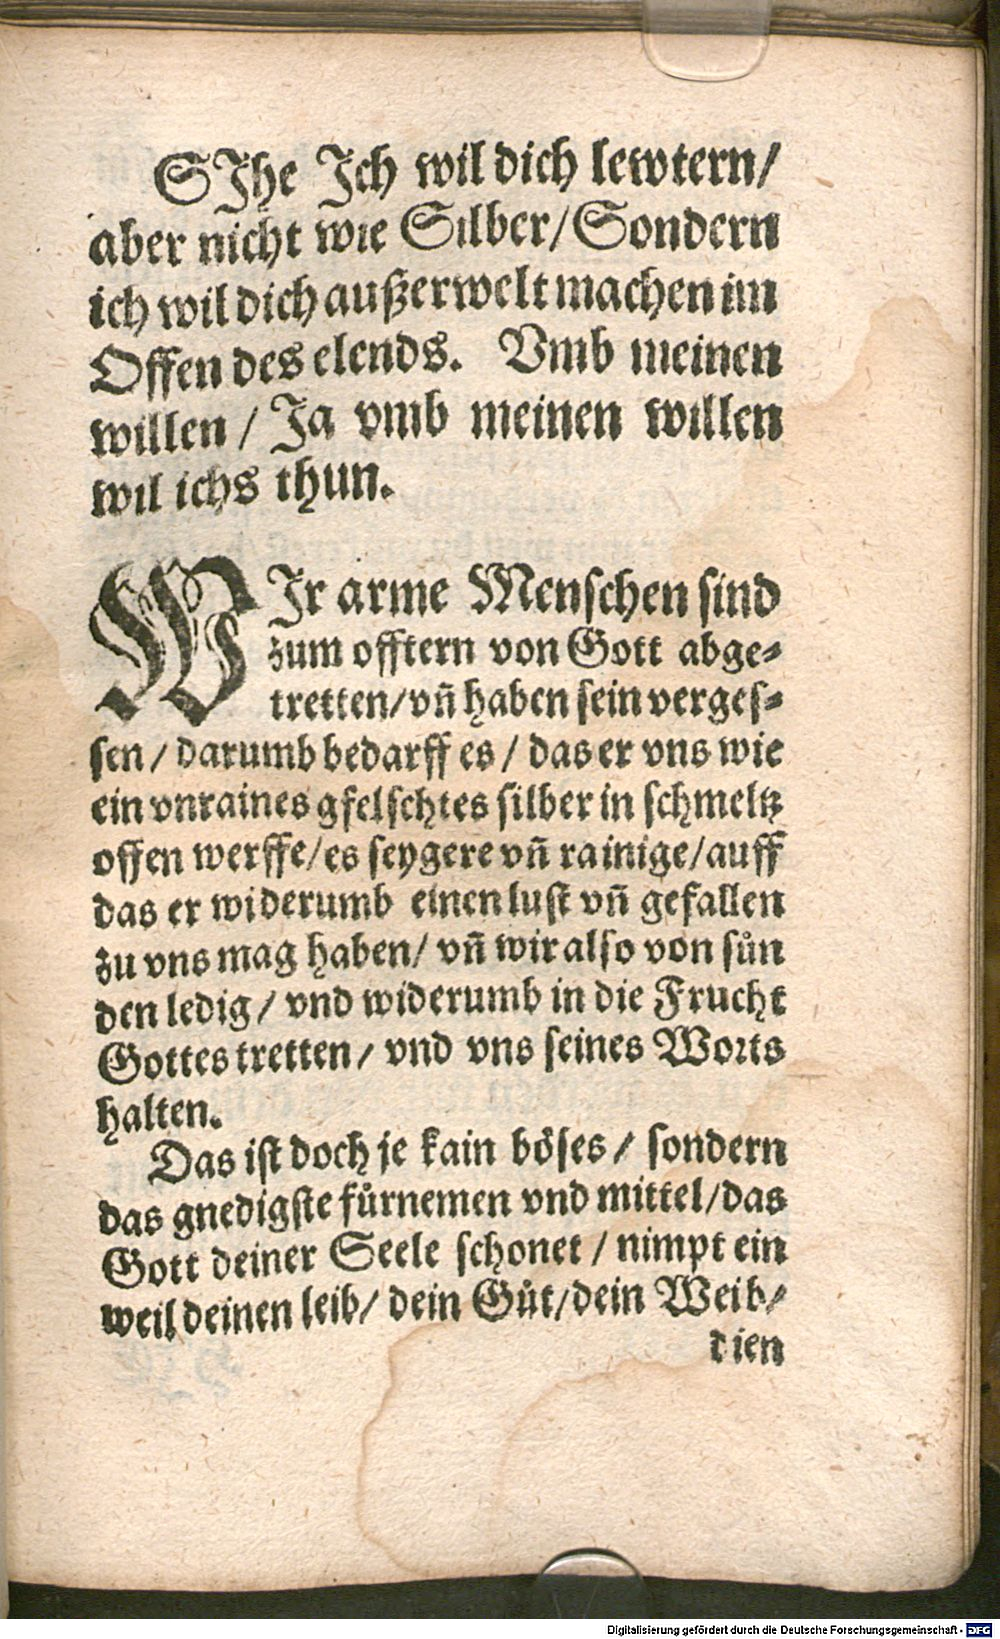 SJhe Jch wil dich lewtern/
aber nicht wie Silber/Sondern
ich wil dich außerwelt machen im
Offen des elends. Vmb meinen
willen / Ja vmb meinen willen
wil ichs thun.
WJr arme Menschen sind
zum offtern von Gott abge⸗
tretten/vñ haben sein verges⸗
sen / darumb bedarff es / das er vns wie
ein vnraines gfelschtes silber in schmeltz
offen werffe/es seygere vñ rainige/auff
das er widerumb einen lust vñ gefallen
zu vns mag haben/ vñ wir also von suͤn
den ledig/ vnd widerumb in die Frucht
Gottes tretten/ vnd vns seines Worts
halten.
Das ist doch je kain boͤses/ sondern
das gnedigste fuͤrnemen vnd mittel/das
Gott deiner Seele schonet / nimpt ein
weil deinen leib/ dein Guͤt/dein Weib/
dien
Digitalisierung gefördert durch die Deutsche Forschungsgemeinschaft - DFG